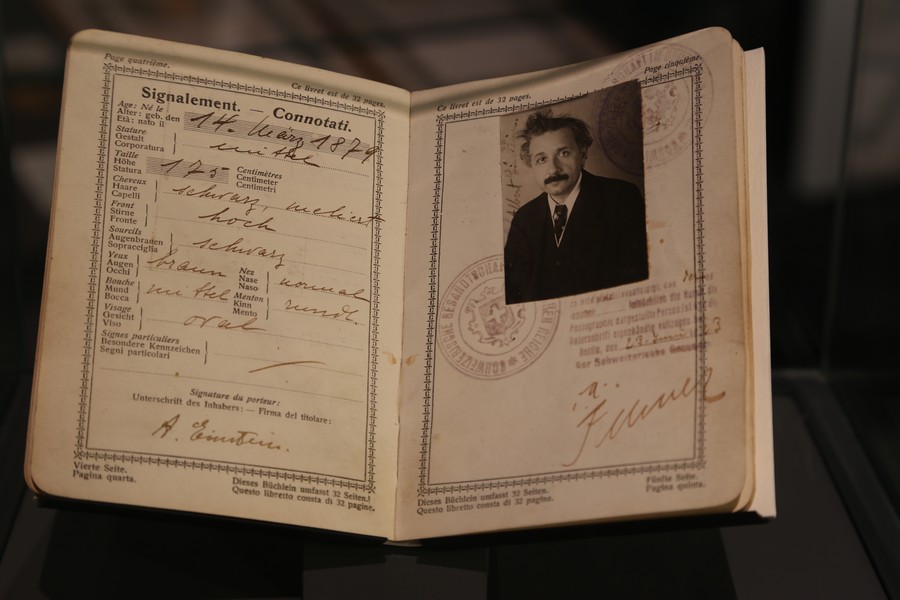 Page quatrième.
Ce livret est de 32 pages.
Signalement. — Connotati.
Age: Né le
Alter: geb. den
Età: nato il
14. März 1879
Stature
Gestalt
Corporatura
mittel
Taille
Höhe
Statura
175
Centimètres
Centimeter
Centimetri
Cheveux
Haare
Capelli
schwarz, meliert
Front
Stirne
Fronte
hoch
Sourcils
Augenbrauen
Sopracciglia
schwarz
Yeux
Augen
Occhi
braun
Nez
Nase
Naso
normal
Bouche
Mund
Bocca
mittel
Menton
Kinn
Mento
rund.
Visage
Gesicht
Viso
oval
Signes particuliers
Besondere Kennzeichen
Segni particolari
—
Signature du porteur:
Unterschrift des Inhabers: — Firma del titolare:
A. Einstein.
Vierte Seite.
Pagina quarta.
Dieses Büchlein umfasst 32 Seiten.
Questo libretto consta di 32 pagine.
Ce livret est de 32 pages.
Page cinquième.
SCHWEIZERISCHE GESANDTSCHAFT
DEUTSCHEN REICHE
Der Schweizerische
Dieses Büchlein umfasst 32 Seiten.
Questo libretto consta di 32 pagine.
Fünfte Seite.
Pagina quinta.